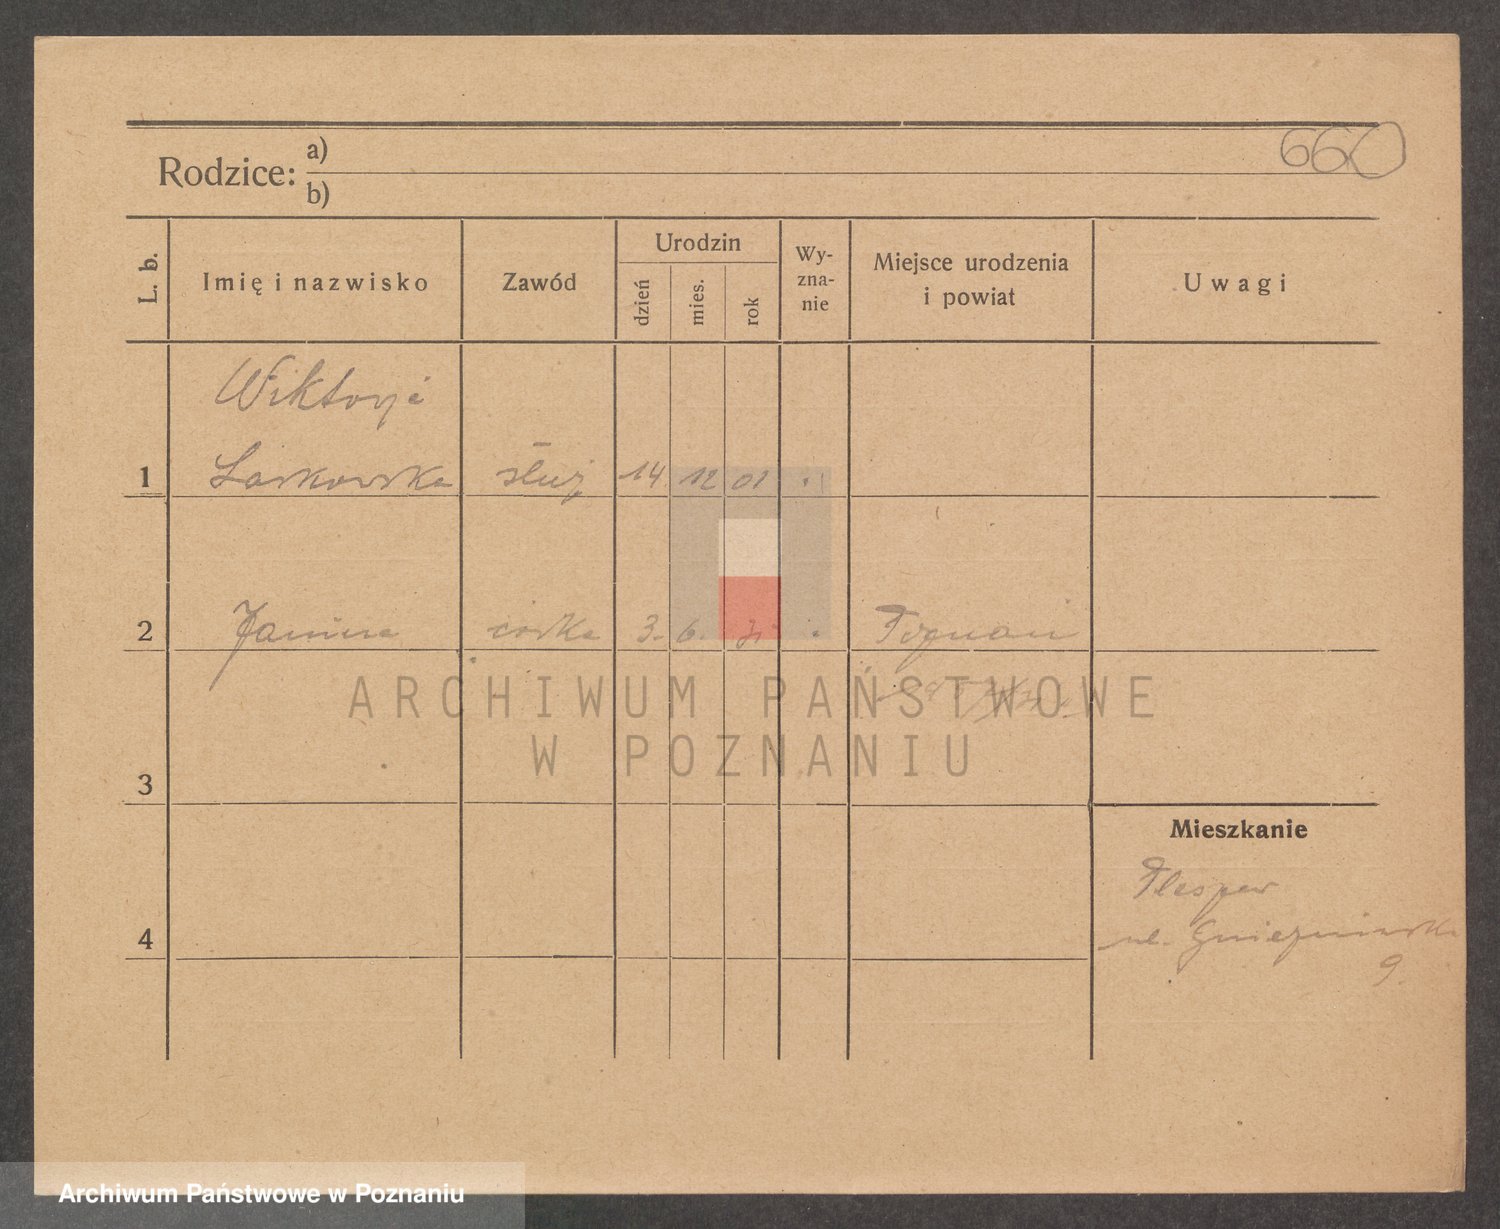 660
Rodzice: a)
b)
L. b.
Imię i nazwisko
Zawód
Urodzin
dzień
mies.
rok
Wy-
zna-
nie
Miejsce urodzenia
i powiat
Uwagi
Wiktorja
1 Laskowska służ 14 12 01
2 Janina córka 3. 6. Poznań
3
4
Mieszkanie
Pleszew
ul. Gnieźnieńska
9.
ARCHIWUM PAŃSTWOWE
W POZNANIU
Archiwum Państwowe w Poznaniu